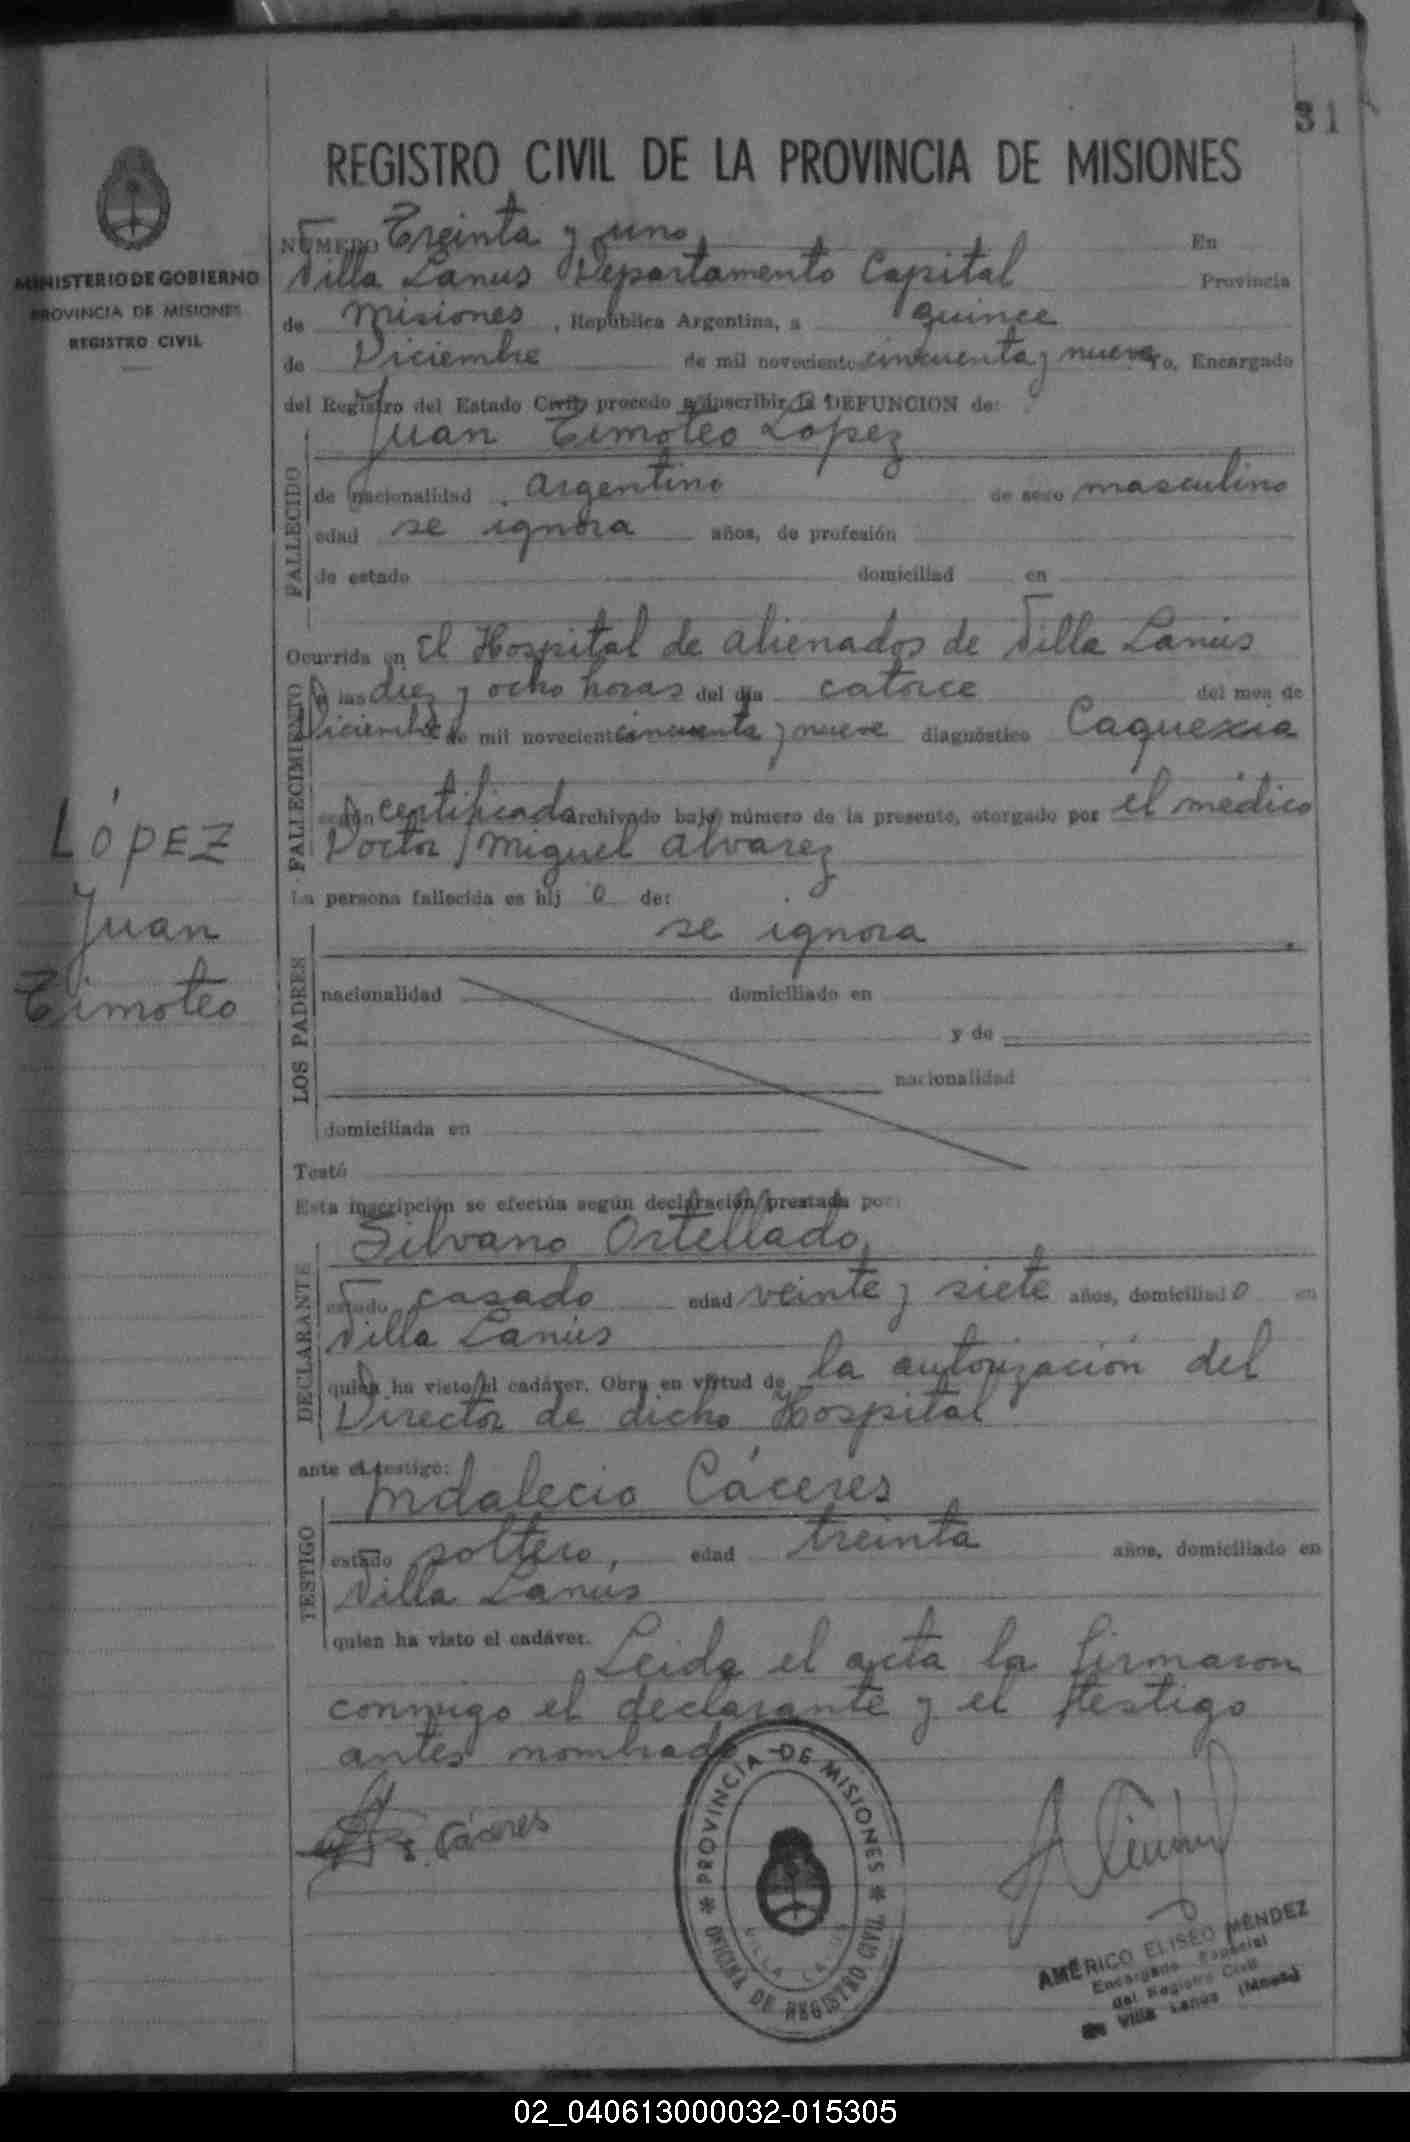 31
MINISTERIO DE GOBIERNO
PROVINCIA DE MISIONES
REGISTRO CIVIL
LÓPEZ
Juan
Timoteo
REGISTRO CIVIL DE LA PROVINCIA DE MISIONES
NÚMERO Treinta y uno En
Villa Lanus Departamento Capital Provincia
de Misiones, República Argentina, a quince
de Diciembre de mil novecientos cincuenta y nueve Yo, Encargado
del Registro del Estado Civil, procedo a inscribir la DEFUNCION de:
Juan Timoteo Lopez
FALLECIDO
de nacionalidad argentino de sexo masculino
edad se ignora años, de profesión
de estado domiciliad en
Ocurrida en El Hospital de alienados de Villa Lanús
FALLECIMIENTO
A las diez y ocho horas del día catorce del mes de
Diciembre de mil novecientos cincuenta y nueve diagnóstico Caquexia
según certificado archivado bajo número de la presente, otorgado por el médico
Doctor Miguel Alvarez
La persona fallecida es hij o de:
se ignora
LOS PADRES
nacionalidad domiciliado en
y de
nacionalidad
domiciliada en
Testó
Esta inscripción se efectúa según declaración prestada por:
Silvano Ortellado,
DECLARANTE
estado casado edad veinte y siete años, domiciliado en
Villa Lanús
quien ha visto el cadáver. Obra en virtud de la autorización del
Director de dicho Hospital
ante el testigo:
Indalecio Cáceres
TESTIGO
estado soltero, edad treinta años, domiciliado en
Villa Lanús
quien ha visto el cadáver. Leida el acta la firmaron
conmigo el declarante y el testigo
antes nombrado
Cáceres
PROVINCIA DE MISIONES
OFICINA DE REGISTRO CIVIL
VILLA LANUS
AMÉRICO ELISEO MÉNDEZ
Encargado Especial
del Registro Civil
Villa Lanús (Mnes.)
02_040613000032-015305